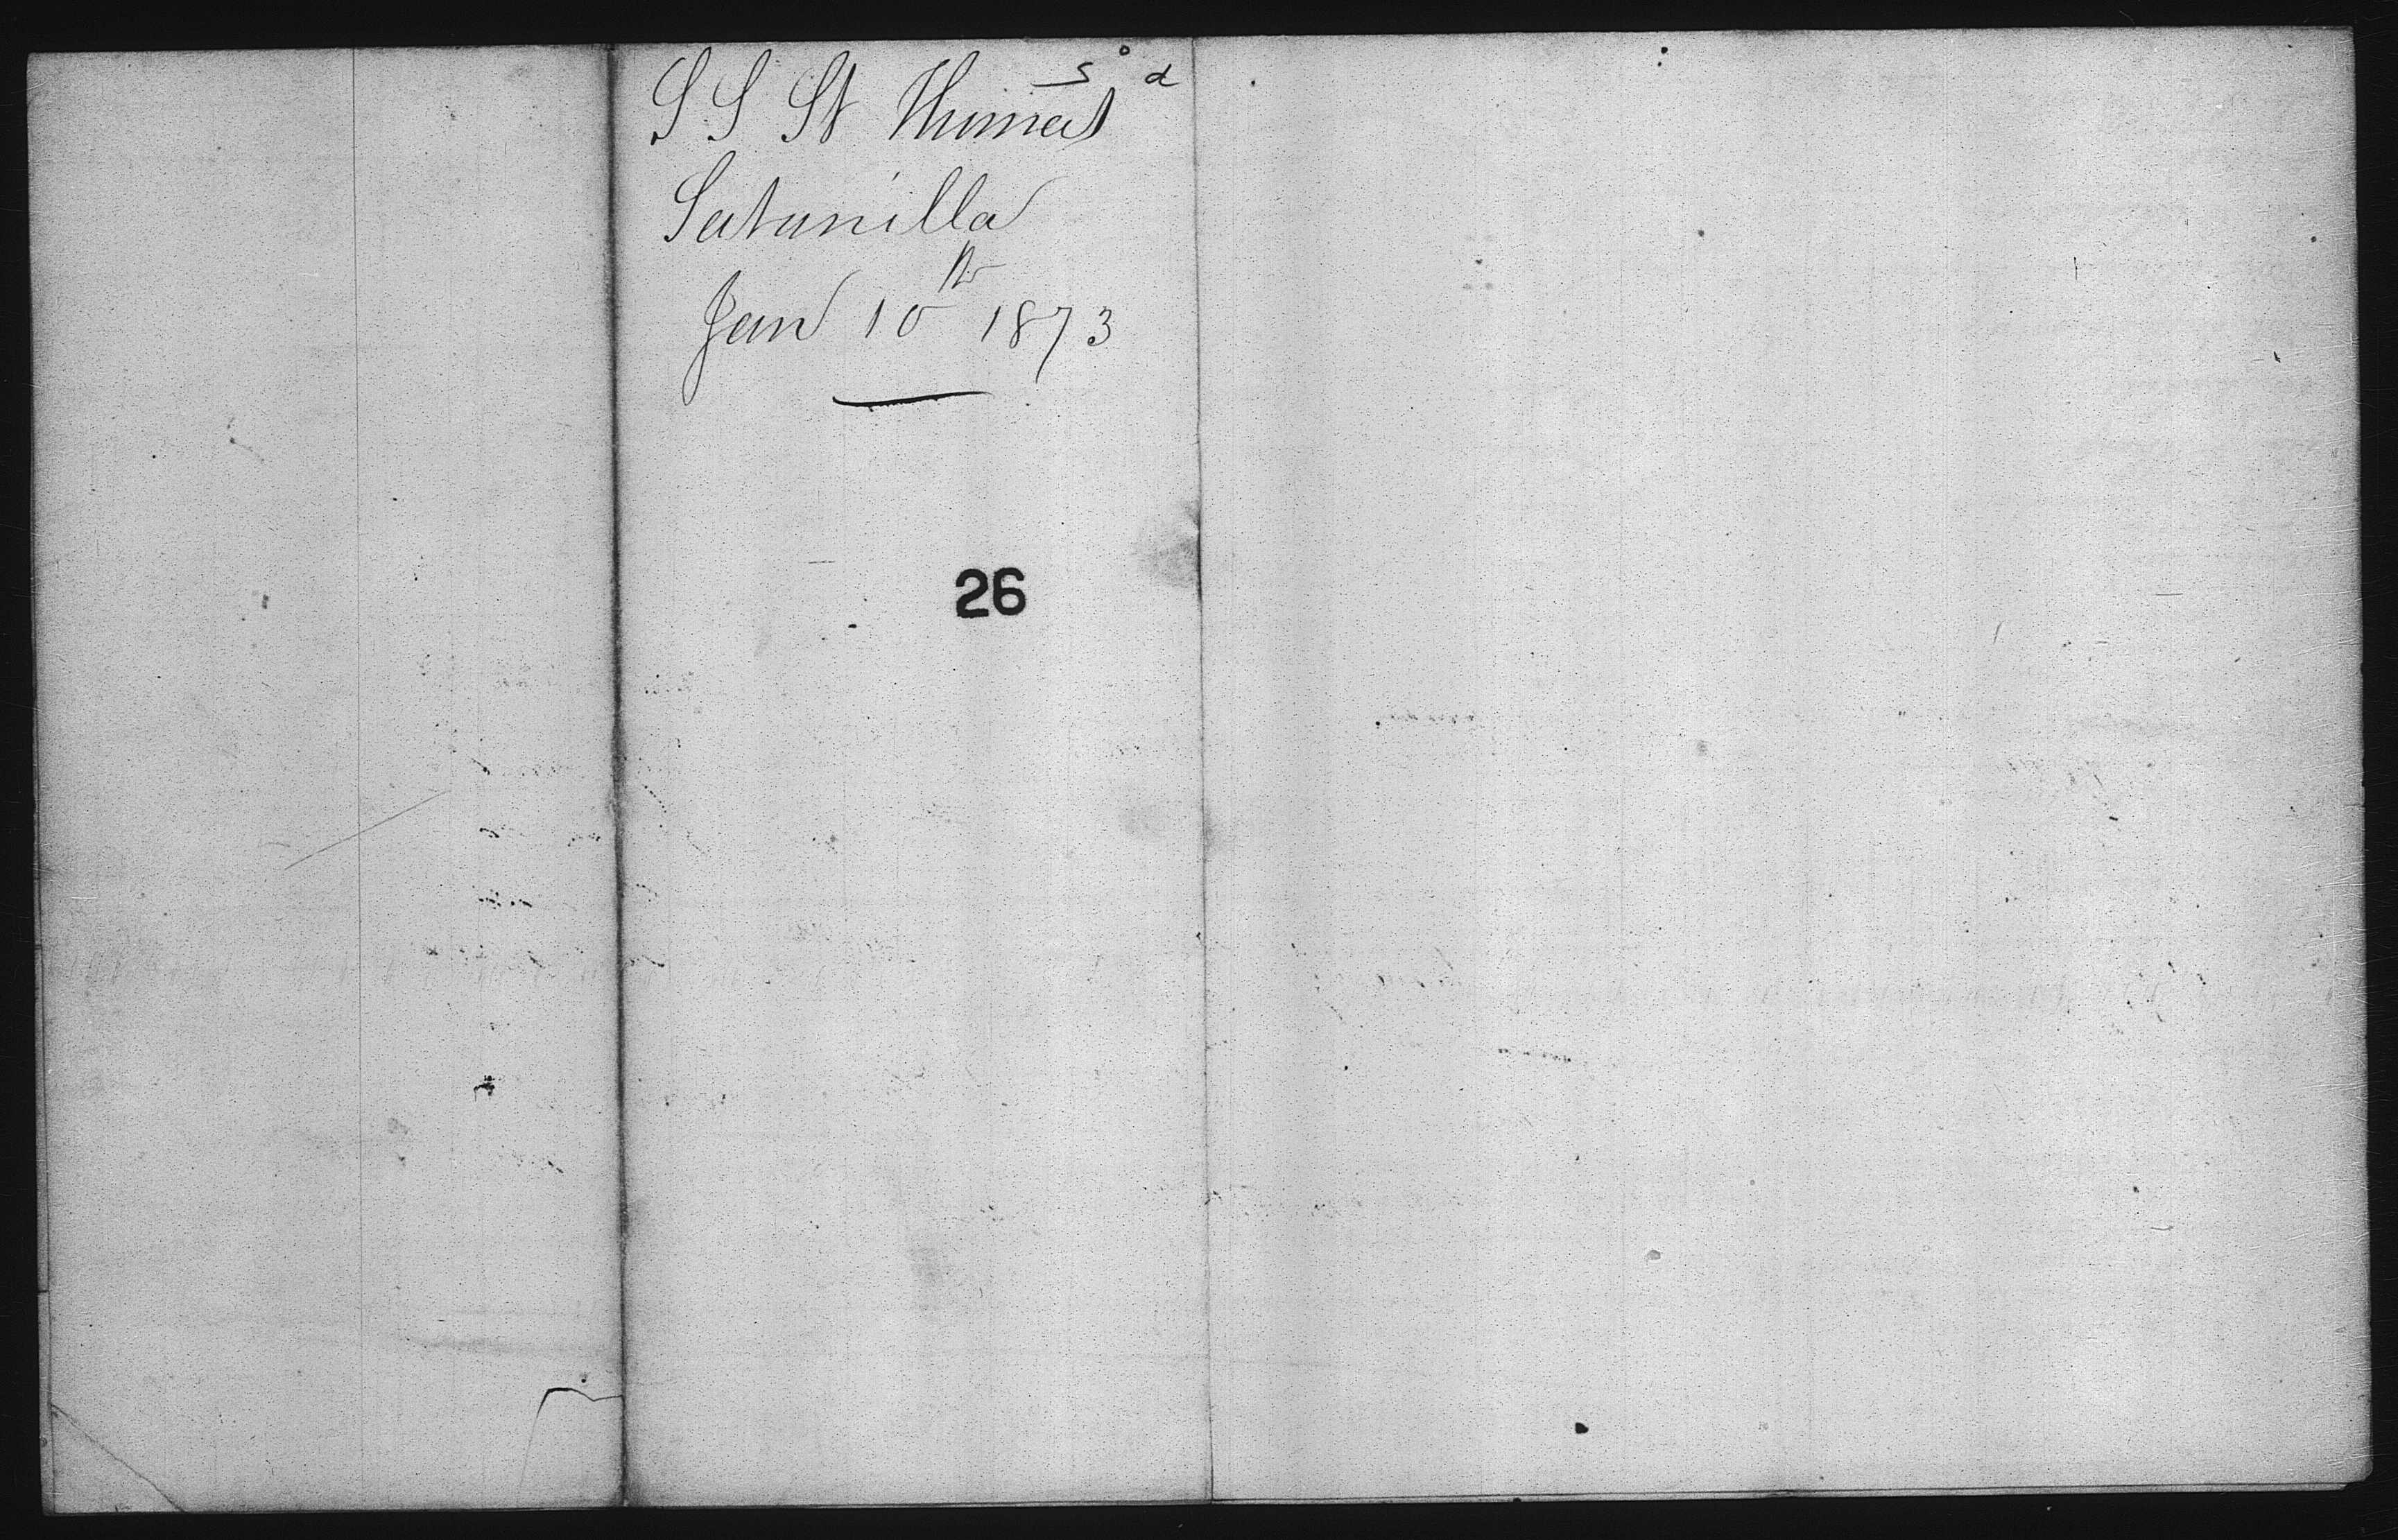 S S St Thomas
Satanilla
Jan 10th 1873
26